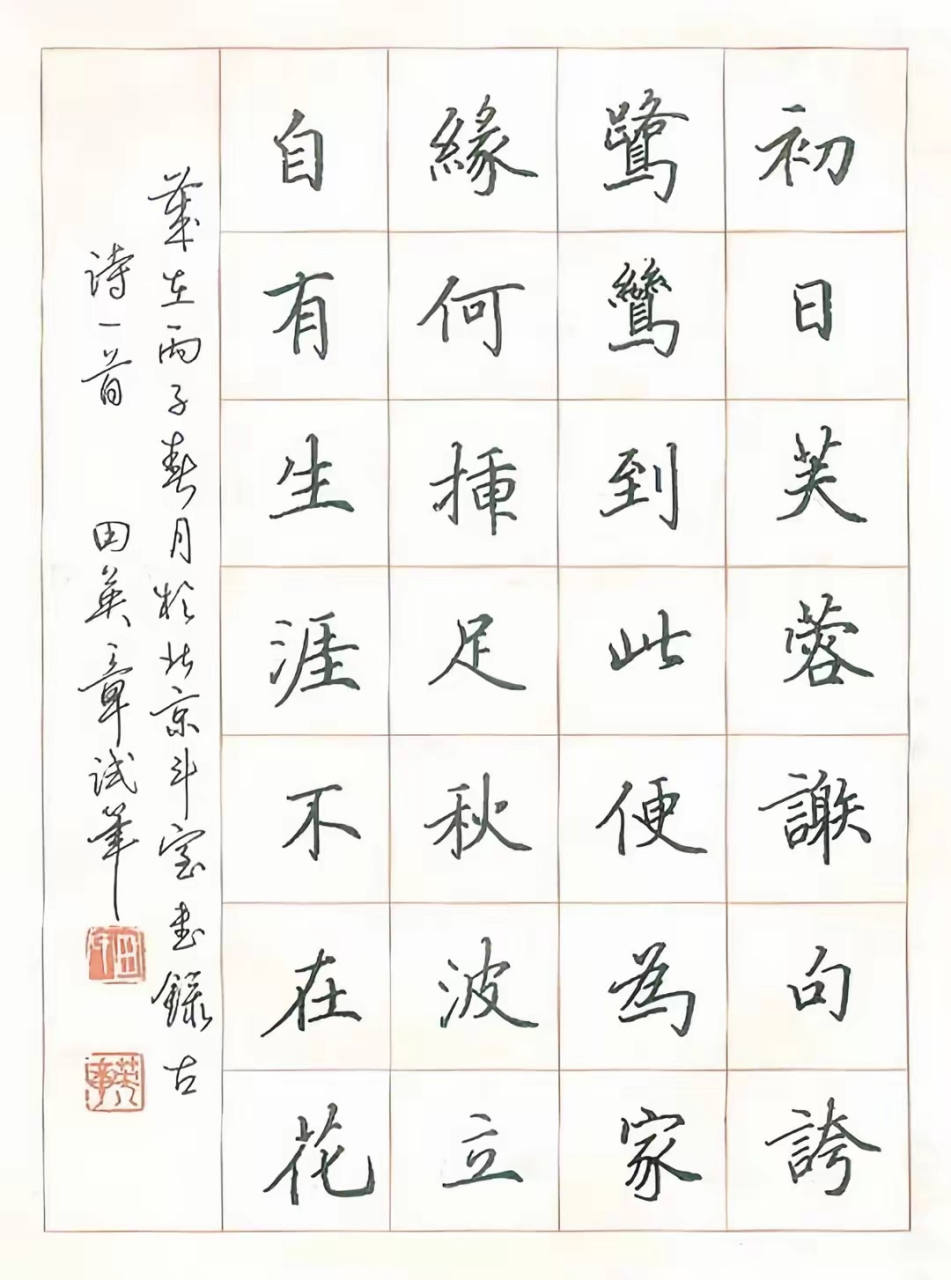 初日芙蓉謝句誇
鷺鷥到此便為家
緣何插足秋波立
自有生涯不在花
歲在丙子春月於北京斗室書錄古
诗一首 田英章试筆
英章